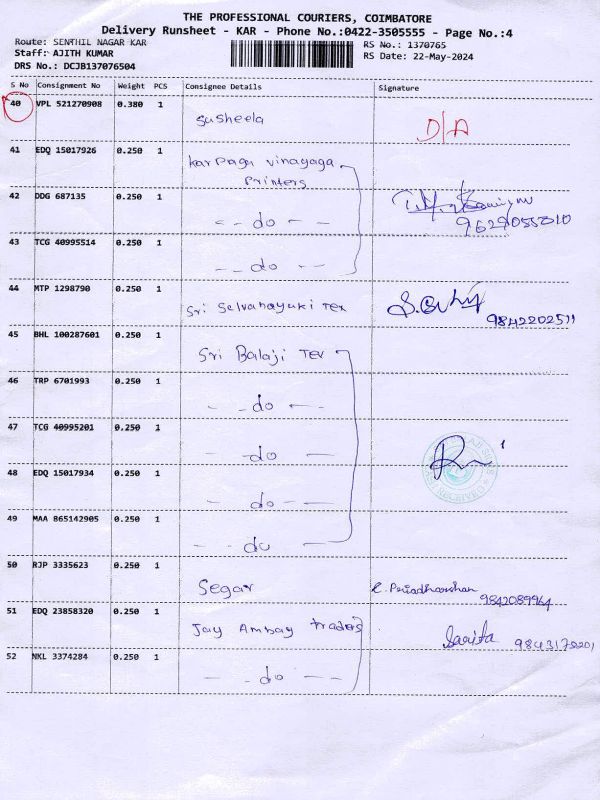 THE PROFESSIONAL COURIERS, COIMBATORE
Delivery Runsheet - KAR - Phone No.:0422-3505555 - Page No.:4
Route: SENTHIL NAGAR KAR
Staff: AJITH KUMAR
DRS No.: DCJB137076504
RS No.: 1370765
RS Date: 22-May-2024
S No Consignment No Weight PCS Consignee Details Signature
40 VPL 521270908 0.380 1 Susheela D/A
41 EDQ 15017926 0.250 1 Karpaga vinayaga
Printers
42 DDG 687135 0.250 1 - - do - -
9629055010
43 TCG 40995514 0.250 1 - - do - -
44 MTP 1298790 0.250 1 Sri Selvanayaki Tex
9842202511
45 BHL 100287601 0.250 1 Sri Balaji Tex
46 TRP 6701993 0.250 1 - - do - -
47 TCG 40995201 0.250 1 - do -
RECEIVED
48 EDQ 15017934 0.250 1 - do - -
49 MAA 865142905 0.250 1 - - do -
50 RJP 3335623 0.250 1 Segar 9842089964
51 EDQ 23858320 0.250 1 Jay Ambay traders Sarita
52 NKL 3374284 0.250 1 - - do - -